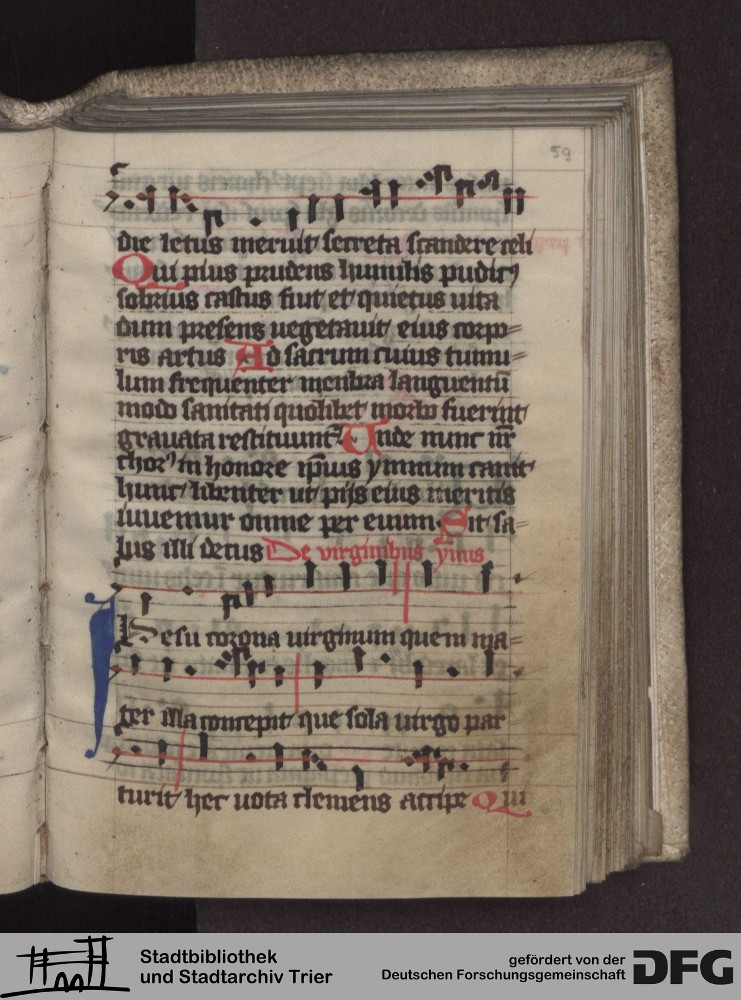 59
die letus meruit secreta scandere celi
Qui pius prudens humilis pudicꝰ
sobrius castus fuit et quietus uita
dum presens uegetauit eius corpo=
ris artus Ad sacrum cuius tumu=
lum frequenter menbra languentū
modo sanitati quolibet morbo fuerint
grauata restituunt᷑ Unde nunc nr̄
chorꝰ in honore ip̄ius ymnum canit
hunc libenter ut pijs eius meritis
iuuemur omne per euum Sit sa=
lus illi decus De virginibus ym̄us
Iesu corona uirginum quem ma=
ter illa concepit que sola uirgo par
turit hec uota clemens accipe Qui
Stadtbibliothek
und Stadtarchiv Trier
gefördert von der
Deutschen Forschungsgemeinschaft
DFG